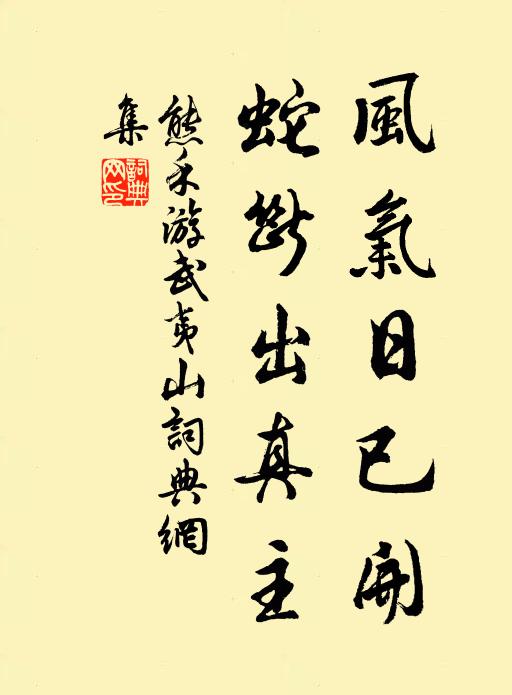 風氣日已開
蛇斷出真主
熊禾游武夷山詞典網
集
詞典網印